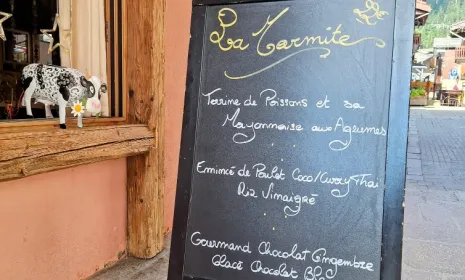 La Marmite
Terrine de Poissons et sa
Mayonnaise aux Agrumes
Emincé de Poulet Coco/Curry Thaï
Riz Vinaigré
Gourmand Chocolat Gingembre
Glacé Chocolat